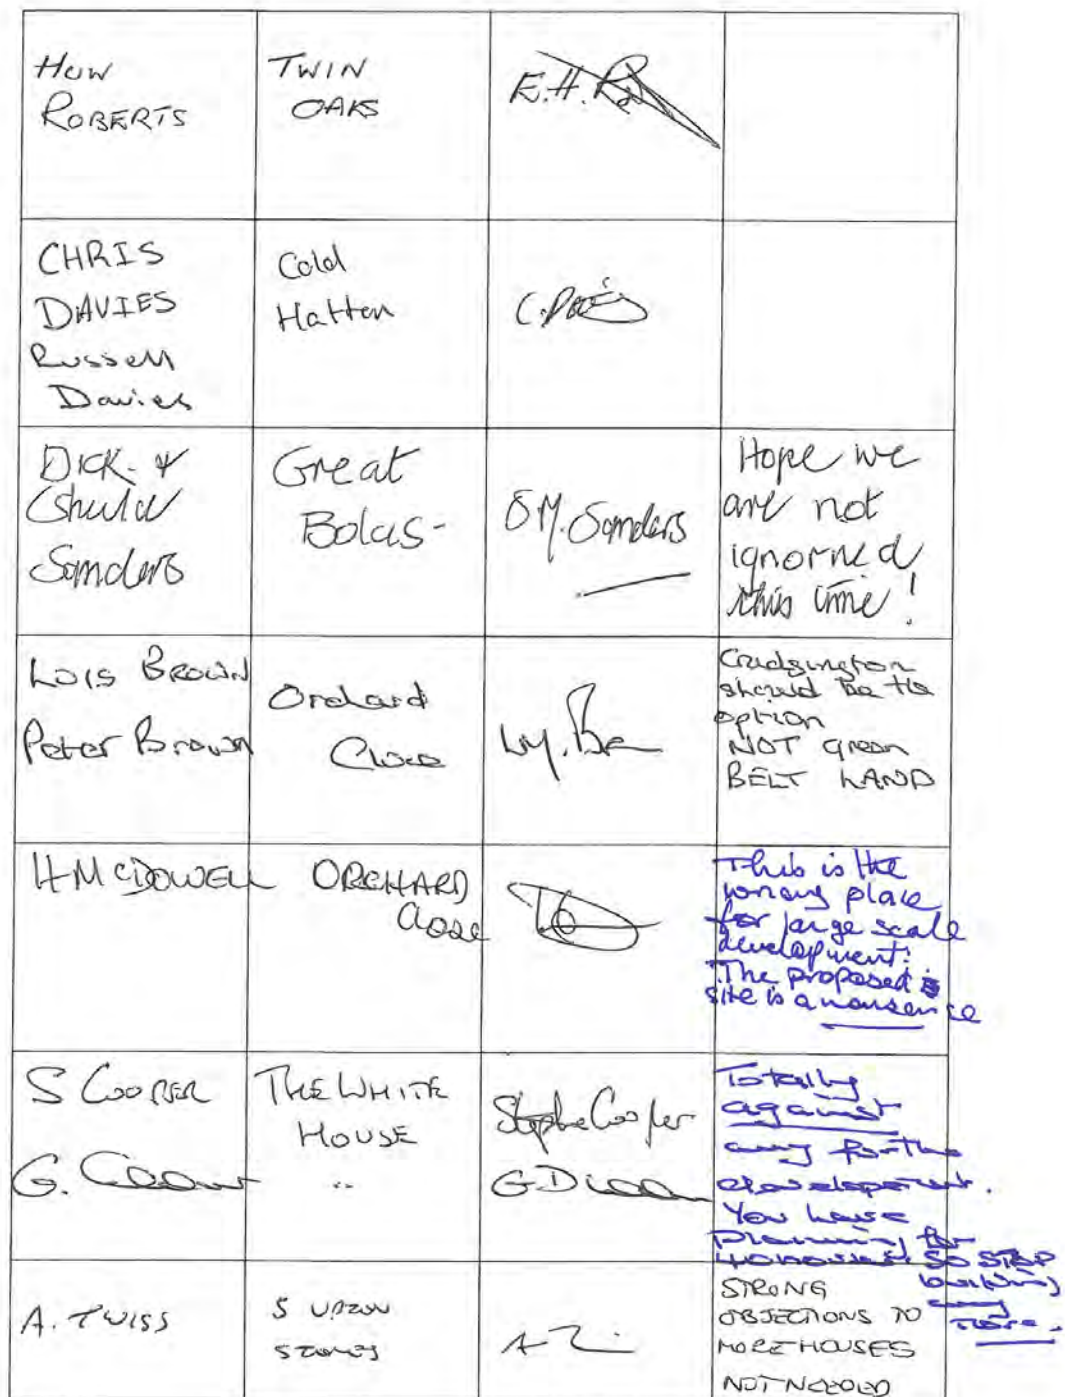 Huw
ROBERTS
TWIN
OAKS
E.H.
CHRIS
DAVIES
Russell
Davies
Cold
Hatton
C. Davies
DICK &
Sanders
Great
Bolas-
S M. Sanders
Hope we
are not
ignorned
this time!
LOIS BROWN
Peter Brown
Orchard
Close
Crudgington
should be the
option
NOT green
BELT LAND
H MCDOWELL
ORCHARD
Close
This is the
wrong place
for large scale
development!
The proposed
site is a nonsence
S COOPER
G.
THE WHITE
HOUSE
"
Stephe Cooper
G
Totally
against
any further
development.
You have
planning for
40 houses SO STOP
building
any
more.
A. TWISS
5 UPTON
STONES
STRONG
OBJECTIONS TO
MORE HOUSES
NOT NEEDED